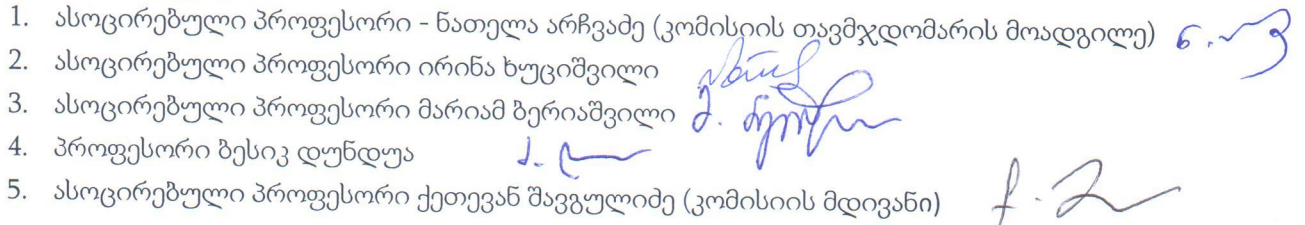 1. ასოცირებული პროფესორი - ნათელა არჩვაძე (კომისიის თავმჯდომარის მოადგილე)
2. ასოცირებული პროფესორი ირინა ხუციშვილი
3. ასოცირებული პროფესორი მარიამ ბერიაშვილი
4. პროფესორი ბესიკ დუნდუა
5. ასოცირებული პროფესორი ქეთევან შავგულიძე (კომისიის მდივანი)